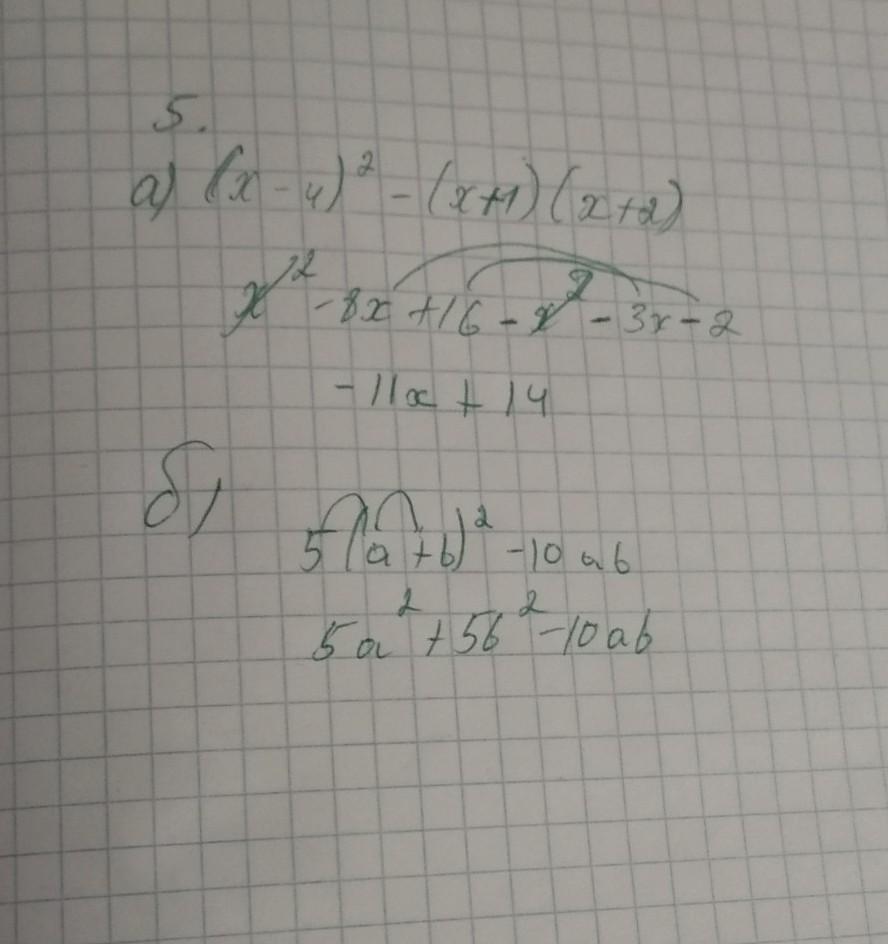 5.
а) (x - 4)² - (x+1)(x+2)
x² - 8x + 16 - x² - 3x - 2
- 11x + 14
б)
5(a+b)² - 10ab
5a² + 5b² - 10ab